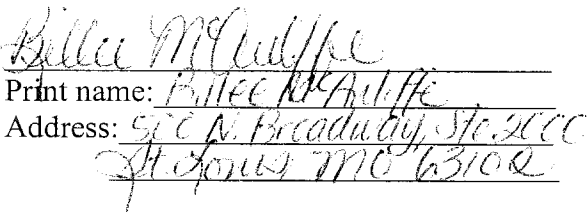 Billie McAuliffe
Print name: Billee McAuliffe
Address: 500 N. Broadway, Ste 2000
St. Louis MO 63102